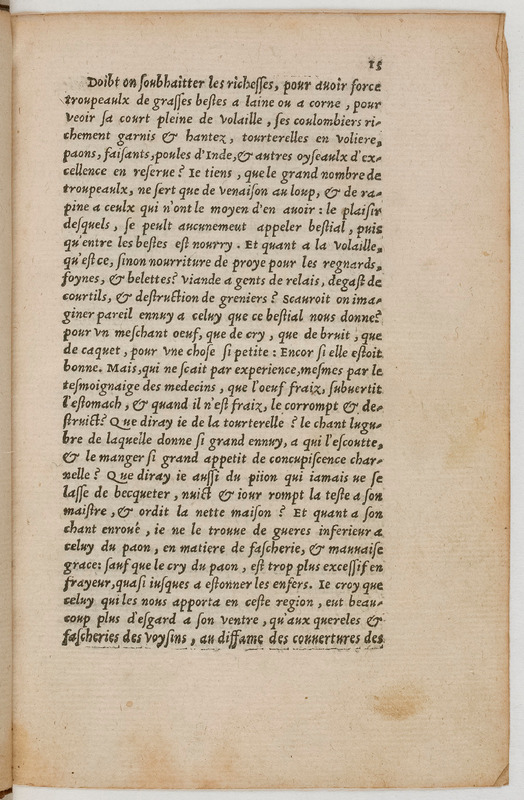 15
Doibt on soubhaitter les richesses, pour auoir force
troupeaulx de grasses bestes a laine ou a corne, pour
veoir sa court pleine de volaille, ses coulombiers ri-
chement garnis & hantez, tourterelles en voliere,
paons, faisants, poules d'Inde, & autres oyseaulx d'ex-
cellence en reserue? Ie tiens, que le grand nombre de
troupeaulx, ne sert que de venaison au loup, & de ra-
pine a ceulx qui n'ont le moyen d'en auoir: le plaisir
desquels, se peult aucunemeut appeler bestial, puis
qu'entre les bestes est nourry. Et quant a la volaille,
qu'est ce, sinon nourriture de proye pour les regnards,
foynes, & belettes? viande a gents de relais, degast de
courtils, & destruction de greniers? Scauroit on ima-
giner pareil ennuy a celuy que ce bestial nous donne?
pour vn meschant oeuf, que de cry, que de bruit, que
de caquet, pour vne chose si petite: Encor si elle estoit
bonne. Mais, qui ne scait par experience, mesmes par le
tesmoignaige des medecins, que l'oeuf fraiz, subuertit
l'estomach, & quand il n'est fraiz, le corrompt & de-
struict? Que diray ie de la tourterelle? le chant lugu-
bre de laquelle donne si grand ennuy, a qui l'escoutte,
& le manger si grand appetit de concupiscence char-
nelle? Que diray ie aussi du piion qui iamais ue se
lasse de becqueter, nuict & iour rompt la teste a son
maistre, & ordit la nette maison? Et quant a son
chant enroué, ie ne le trouue de gueres inferieur a
celuy du paon, en matiere de fascherie, & mauuaise
grace: sauf que le cry du paon, est trop plus excessif en
frayeur, quasi iusques a estonner les enfers. Ie croy que
celuy qui les nous apporta en ceste region, eut beau-
coup plus d'esgard a son ventre, qu'aux quereles &
fascheries des voysins, au diffame des couuertures des